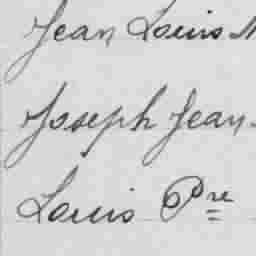 Jean Louis
Joseph Jean
Louis Pre